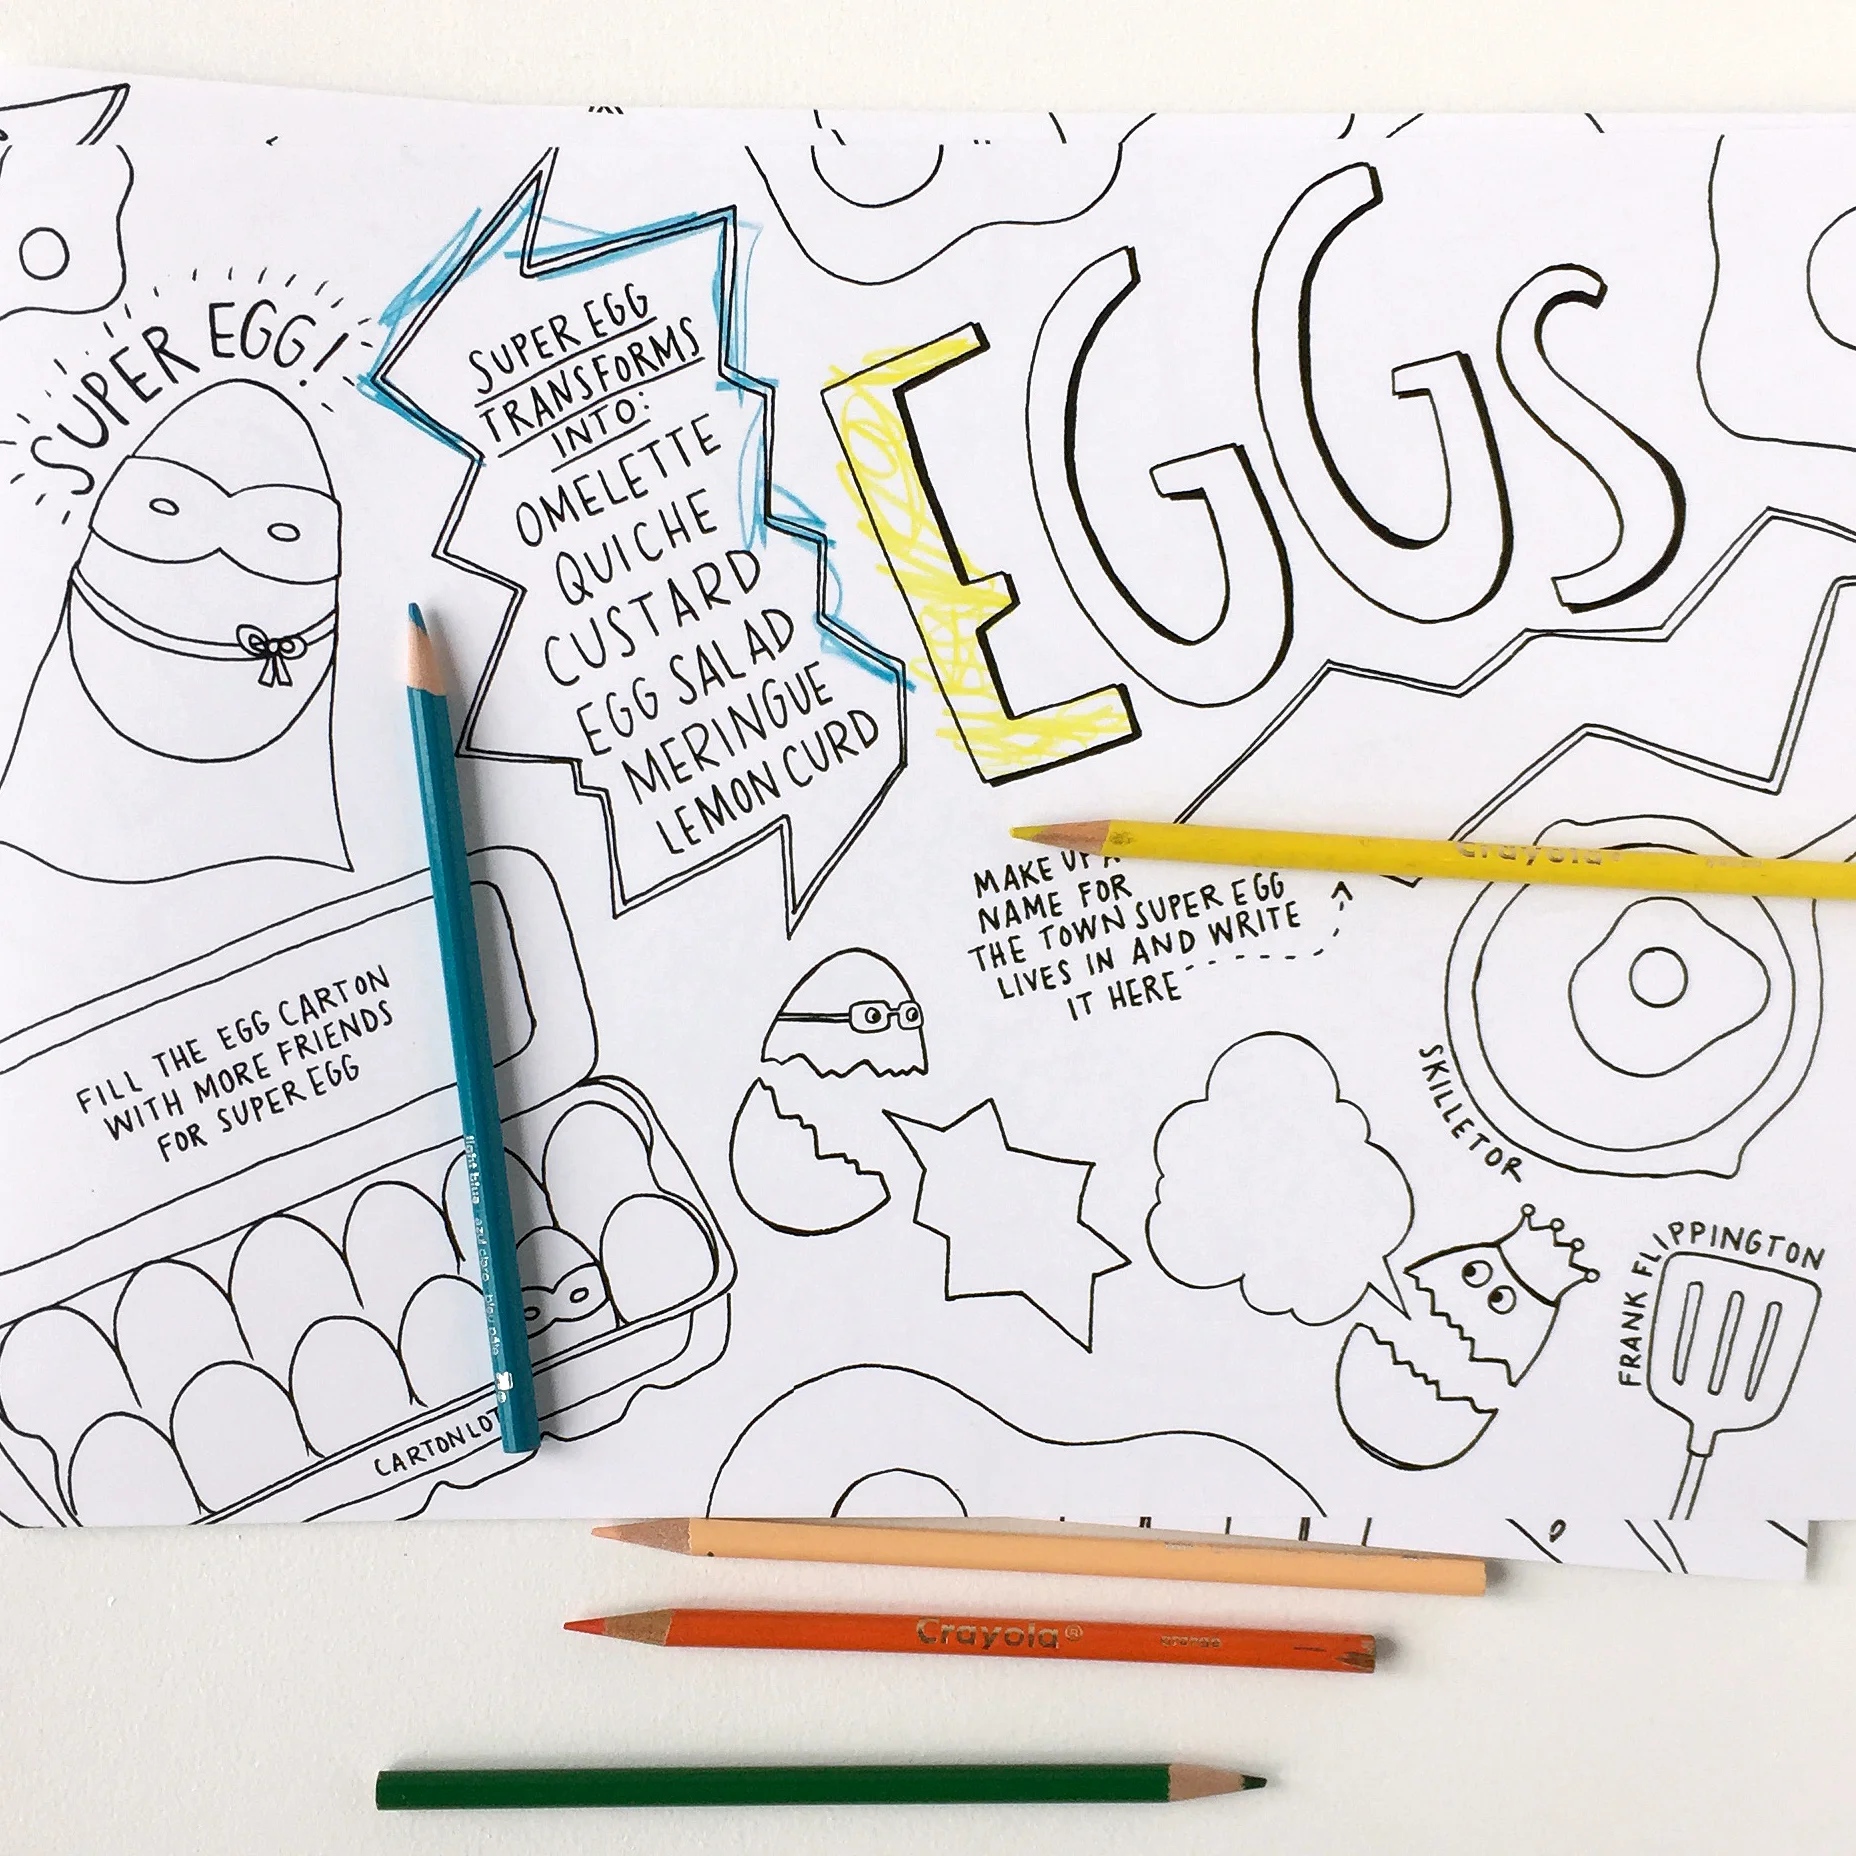 SUPER EGG!
SUPER EGG
TRANSFORMS
INTO:
OMELETTE
QUICHE
CUSTARD
EGG SALAD
MERINGUE
LEMON CURD
EGGS
MAKE UP A
NAME FOR
THE TOWN SUPER EGG
LIVES IN AND WRITE
IT HERE
FILL THE EGG CARTON
WITH MORE FRIENDS
FOR SUPER EGG
CARTON LOT
SKILLETOR
FRANK FLIPPINGTON
light blue azul claro bleu pâle
Crayola®
Crayola® orange